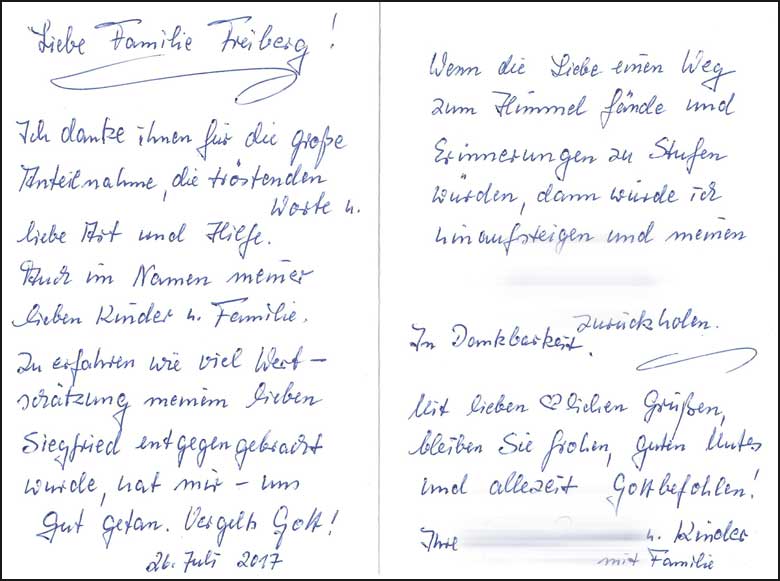 Liebe Familie Freiberg!
Ich danke ihnen für die große
Anteilnahme, die tröstenden
Worte u.
liebe Art und Hilfe.
Auch im Namen meiner
lieben Kinder u. Familie.
Zu erfahren wie viel Wert-
schätzung meinem lieben
Siegfried entgegengebracht
wurde, hat mir - uns
gut getan. Vergelts Gott!
26. Juli 2017
Wenn die Liebe einen Weg
zum Himmel fände und
Erinnerungen zu Stufen
würden, dann würde ich
hinaufsteigen und meinen
zurückholen.
In Dankbarkeit.
Mit lieben ♡lichen Grüßen,
bleiben Sie frohen, guten Mutes
und allezeit Gottbefohlen!
Ihre u. Kinder
mit Familie